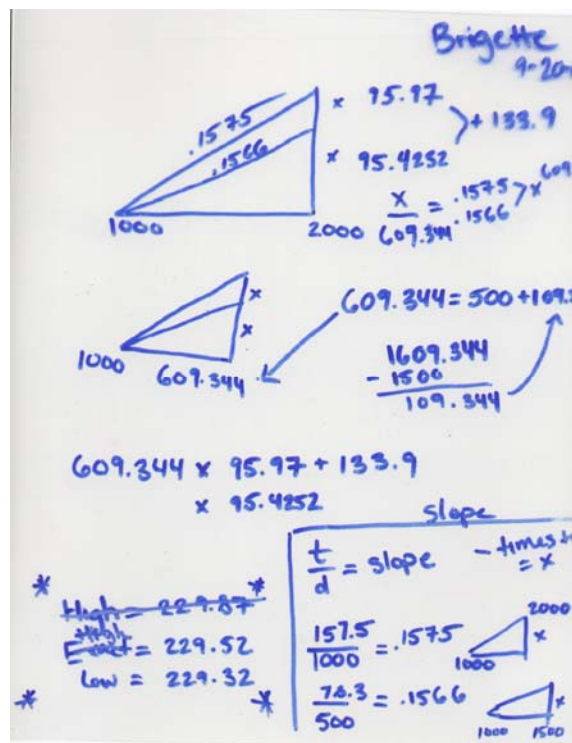 Brigette
9-20-
.1575
.1566
x 95.97
> + 133.9
x 95.4252
1000
2000
x/609.344 = .1575/.1566 > x 609
1000
609.344
x
x
609.344 = 500 + 109.
1609.344
- 1500
109.344
609.344 x 95.97 + 133.9
x 95.4252
slope
t/d = slope
- times
= x
* High = 229.87 *
High
= 229.52
* Low = 229.32 *
157.5/1000 = .1575
2000
x
1000
78.3/500 = .1566
x
1000
1500